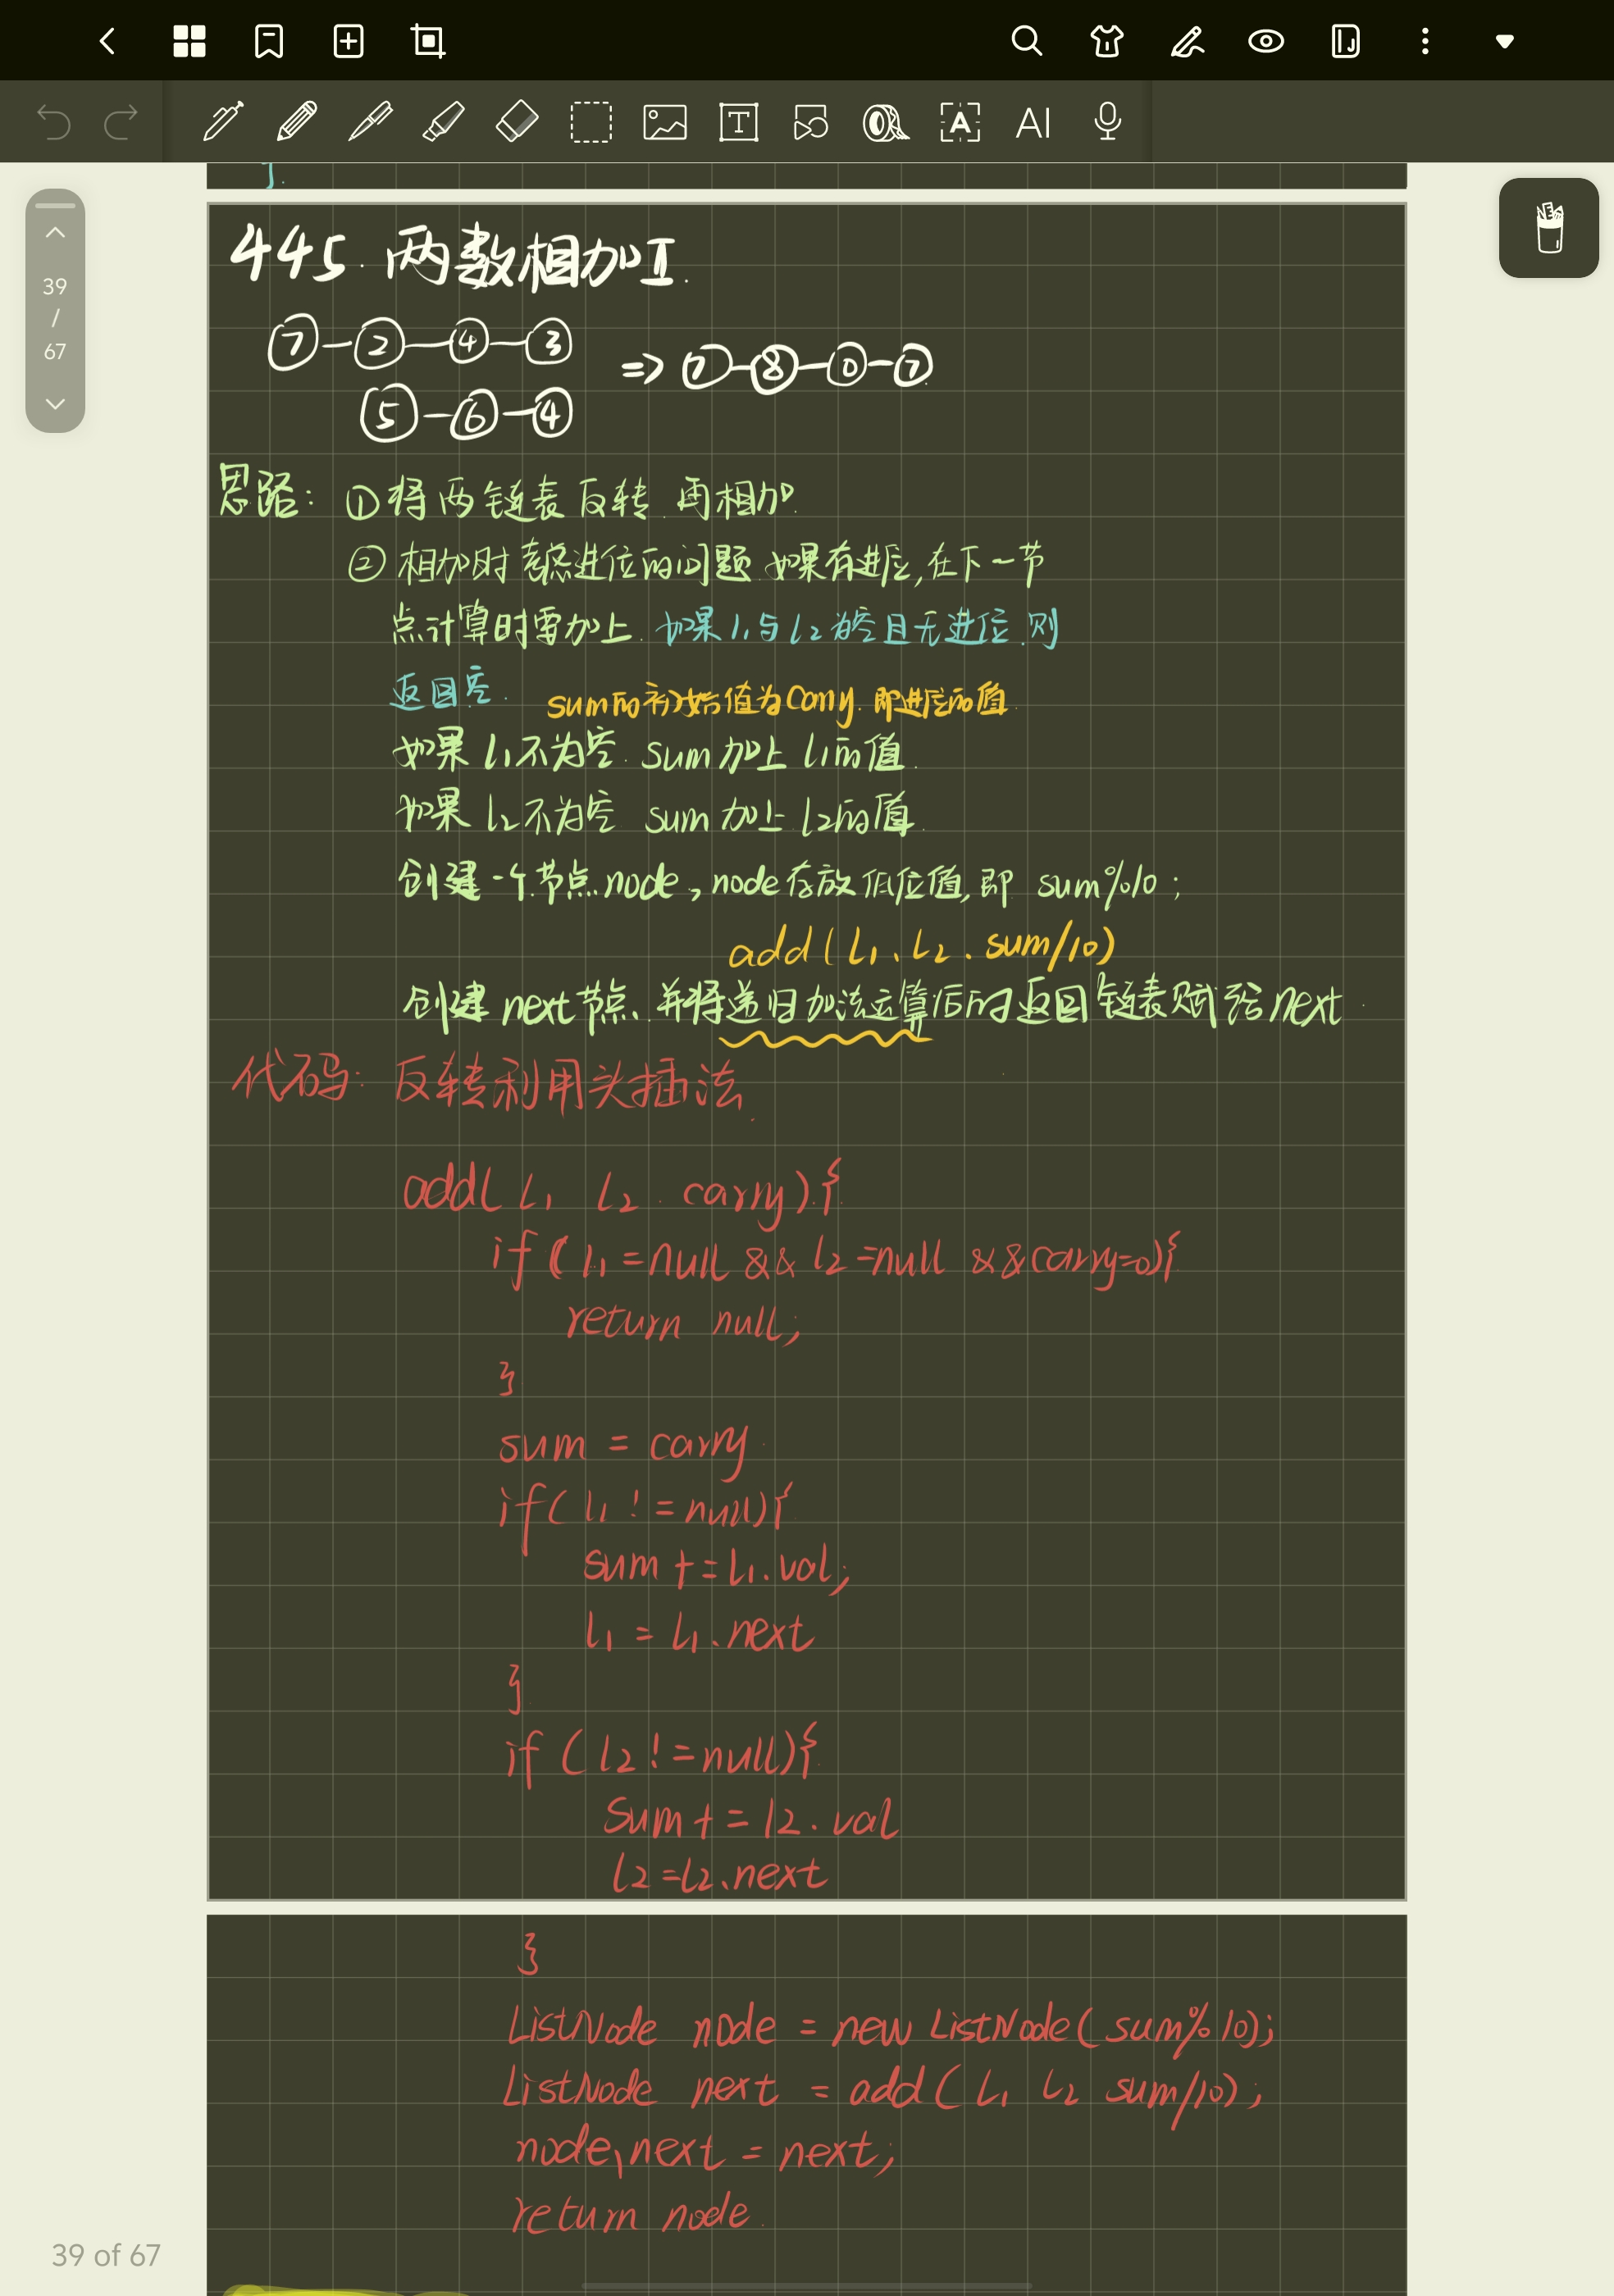 39
/
67
T
A
AI
445.两数相加II.
7—2—4—3
5—6—4
=> 7—8—0—7
思路: ①将两链表反转 再相加.
②相加时考虑进位的问题.如果有进位,在下一节
点计算时需加上. 如果l1与l2为空且无进位.则
返回空. sum的初始值为carry.即进位的值.
如果l1不为空. sum加上l1的值.
如果l2不为空 sum加上l2的值.
创建一个节点node,node存放低位值,即 sum%10;
add(L1、L2.sum/10)
创建next节点、并将递归加法运算后的返回链表赋给next.
代码: 反转利用头插法.
add( L1 L2 . carry).{
if( l1=null && l2=null &&carry=0){
return null;
}
sum = carry.
if( l1 !=null){
sum +=L1.val;
l1 = L1.next
}
if (l2!=null){
Sum+=l2.val
l2=L2.next
}
ListNode node = new ListNode(sum%10);
ListNode next = add( L1 L2 sum/10);
node.next = next;
return node.
39 of 67